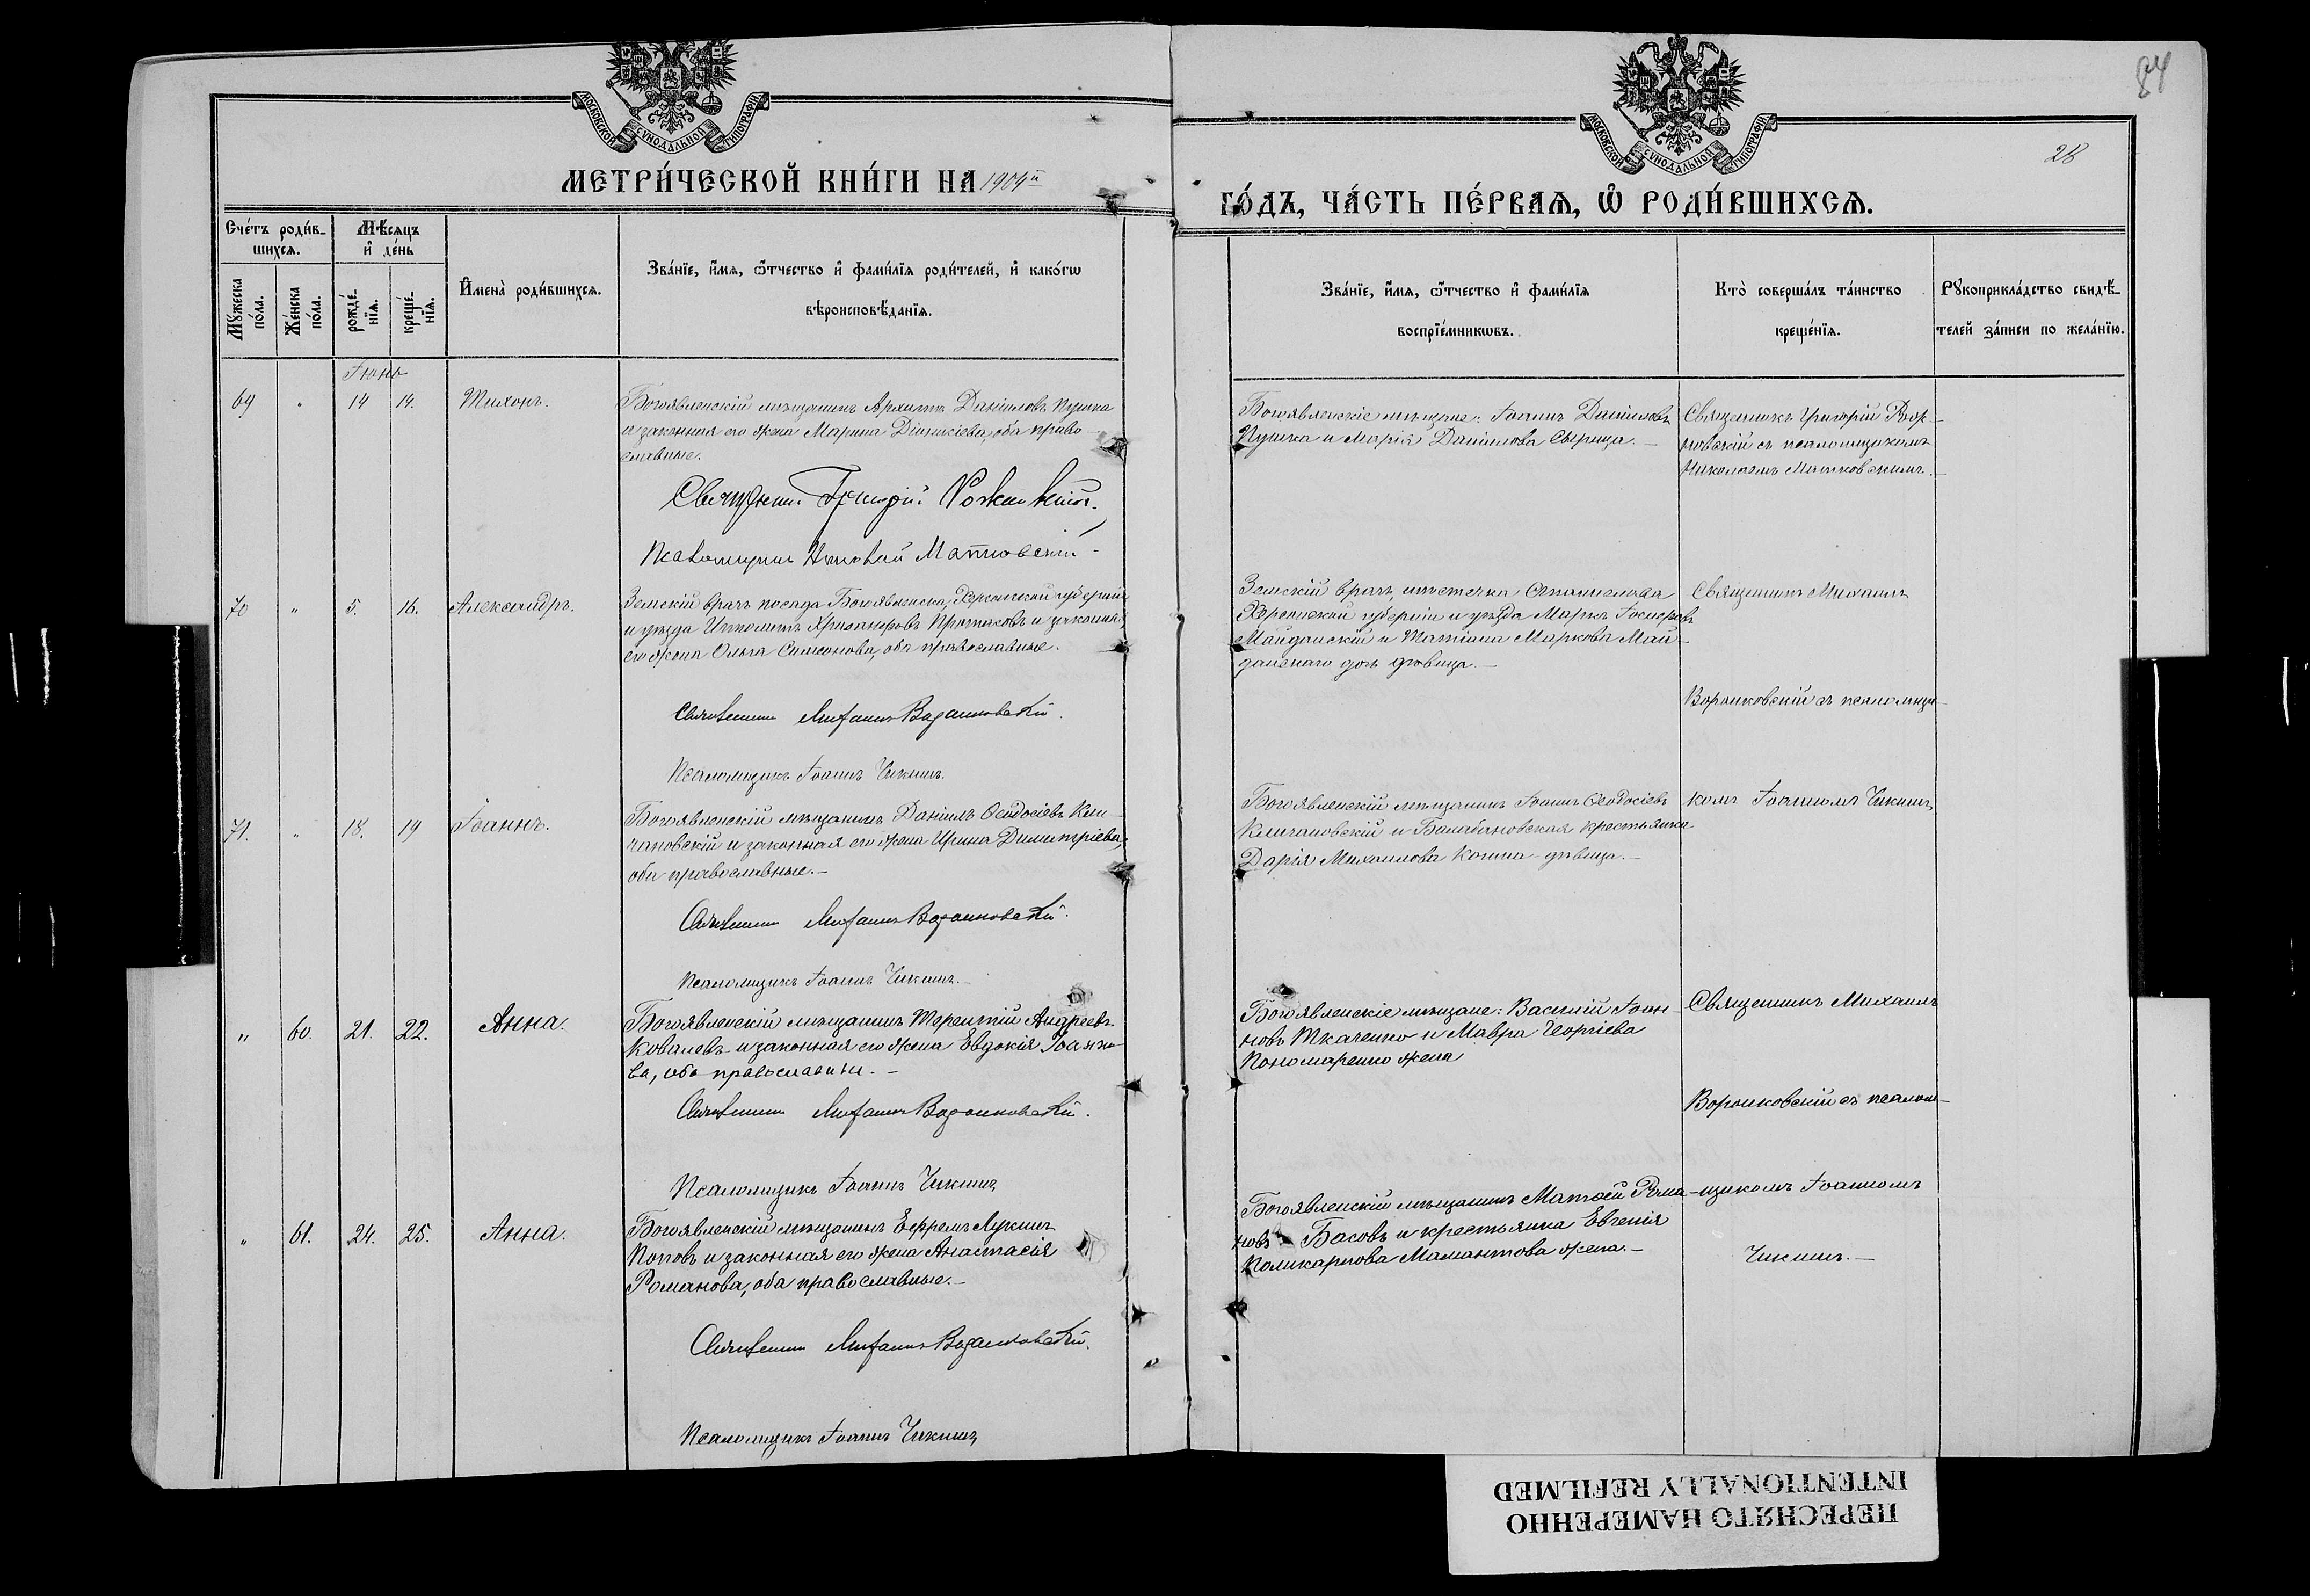 84
28
МОСКОВСКОЙ СѴНОДАЛЬНОЙ ТИПОГРАФІИ
МОСКОВСКОЙ СѴНОДАЛЬНОЙ ТИПОГРАФІИ
МЕТРИ́ЧЕСКОЙ КНИ́ГИ НА 1904й
ГО́ДЪ, ЧА́СТЬ ПЕ́РВАѦ, Ѡ҆ РОДИ́ВШИХСѦ.
Сче́тъ роди́в-
шихсѧ.
Мꙋ́жеска по́ла.
Же́нска по́ла.
Мѣ́сѧцъ
и҆ де́нь
рожде́-
нїѧ.
креще́-
нїѧ.
И҆мена̀ роди́вшихсѧ.
Зва́нїе, и҆́мѧ, ѻ҆́тчество и҆ фами́лїѧ роди́телей, и҆ како́гѡ
вѣроисповѣ́данїѧ.
Зва́нїе, и҆́мѧ, ѻ҆́тчество и҆ фами́лїѧ
воспрїе́мникѡвъ.
Кто̀ соверша́лъ та́инство
креще́нїѧ.
Рꙋкоприкла́дство свидѣ́-
телей за́писи по жела́нїю.
Іюнь
69 " 14 14. Тихонъ.
Богоявленскій мѣщанинъ Архипъ Даніиловъ Пушка
и законная его жена Марина Діонисіева, оба право-
славные.
Священникъ Григорій
Псаломщикъ Николай Матковскій.
Богоявленскіе мѣщане: Іоаннъ Даніиловъ
Пушка и Марія Даніилова Сырица.
Священникъ Григорій
съ псаломщикомъ
Николаемъ Матковскимъ.
70 " 5. 16. Александръ.
Земскій врачъ посада Богоявленска, Херсонской губерніи
и уѣзда Ипполитъ Хрисанѳовъ и законная
его жена Ольга Симеонова, оба православные.
Священникъ Михаилъ Воронковскій.
Псаломщикъ Іоаннъ Чикинъ.
Земскій врачъ, мѣстечка
Херсонской губерніи и уѣзда Маркъ Іосифовъ
Майданскій и Татіана Маркова Май-
данскаго дочь дѣвица.
Священникъ Михаилъ
Воронковскій съ псаломщи-
71. " 18. 19 Іоаннъ.
Богоявленскій мѣщанинъ Даніилъ Ѳеодосіевъ Кли-
чановскій и законная его жена Ирина Димитріева,
оба православные.
Священникъ Михаилъ Воронковскій.
Псаломщикъ Іоаннъ Чикинъ.
Богоявленскій мѣщанинъ Іоаннъ Ѳеодосіевъ
Кличановскій и Балабановская крестьянка
Дарія Михаилова дѣвица.
комъ Іоанномъ Чикинъ,
" 60. 21. 22. Анна.
Богоявленскій мѣщанинъ Терентій Андреевъ
Ковалевъ и законная его жена Евдокія Іоанно-
ва, оба православные.
Священникъ Михаилъ Воронковскій.
Псаломщикъ Іоаннъ Чикинъ
Богоявленскіе мѣщане: Василій Іоан-
новъ Ткаченко и Мавра Георгіева
Пономаренко жена
Священникъ Михаилъ
Воронковскій съ псалом-
" 61. 24. 25. Анна.
Богоявленскій мѣщанинъ Ефремъ Лукинъ
Поповъ и законная его жена Анастасія
Романова, оба православные.
Священникъ Михаилъ Воронковскій.
Псаломщикъ Іоаннъ Чикинъ
Богоявленскій мѣщанинъ Матѳей Рома-
новъ Басовъ и крестьянка Евгенія
Поликарпова Мамантова жена.
щикомъ Іоанномъ
Чикинъ.
ПЕРЕСНЯТО НАМЕРЕННО
INTENTIONALLY REFILMED